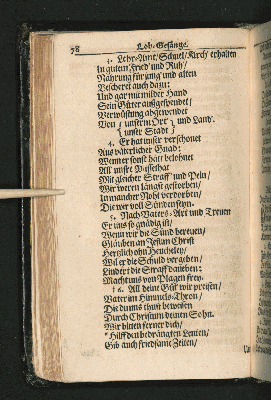 78 Lob-Gesänge.
3. Lehr-Ampt/ Schuel/ Kirch erhalten
In gutem Fried und Ruh/
Nahrung für jung und alten
Bescheret auch dazu:
Und gar mit milder Hand
Sein Güter außgespendet/
Verwüstung abgewendet
Von unserm Ort und Land.
{ unser Stadt }
4. Er hat unser verschonet
Aus väterlicher Gnad:
Wenn er sonst hätt belohnet
All unser Missethat
Mit gleicher Straff und Pein/
Wir weren längst gestorben/
In mancher Noht verdorben/
Die wir voll Sünden seyn.
5. Nach Vaters-Art und Treuen
Er uns so gnädig ist/
Wenn wir die Sünd bereuen/
Gläuben an Jesum Christ
Hertzlich ohn Heucheley/
Wil er die Schuld vergeben/
Lindert die Straff daneben:
Macht uns von Plagen frey.
6. All deine Güt wir preisen/
Vater im Himmels-Thron/
Die du uns thust beweisen
Durch Christum deinen Sohn.
Wir bitten ferner dich/
Hilff den bedrängten Leuten/
Gib auch friedsame Zeiten/